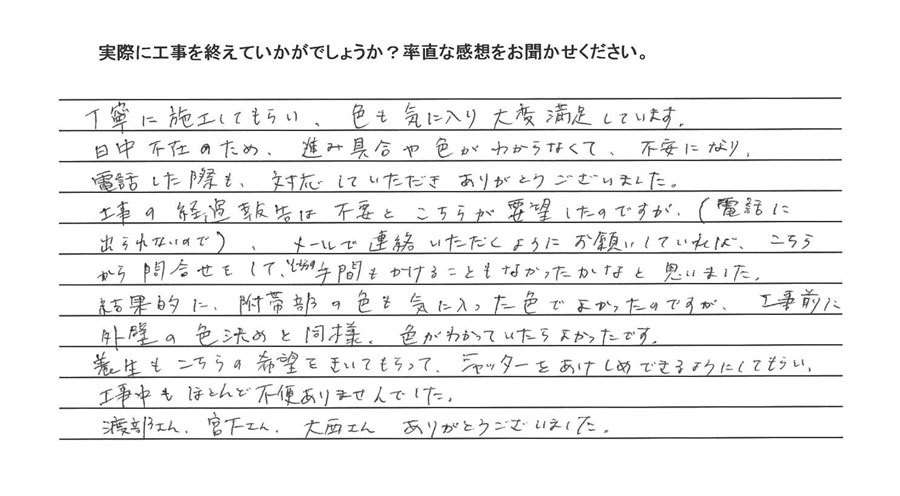 実際に工事を終えていかがでしょうか？率直な感想をお聞かせください。
丁寧に施工してもらい、色も気に入り大変満足しています。
日中不在のため、進み具合や色がわからなくて、不安になり、
電話した際も、対応していただきありがとうございました。
工事の経過報告は不要とこちらが要望したのですが、(電話に
出られないので)、メールで連絡いただくようにお願いしていれば、こちら
から問合せをして、手間もかけることもなかったかなと思いました。
結果的に、附帯部の色も気に入った色でよかったのですが、工事前に
外壁の色決めと同様、色がわかっていたらよかったです。
養生もこちらの希望をきいてもらって、シャッターをあけしめできるようにしてもらい、
工事中もほとんど不便ありませんでした。
渡部さん、宮下さん、大西さん ありがとうございました。